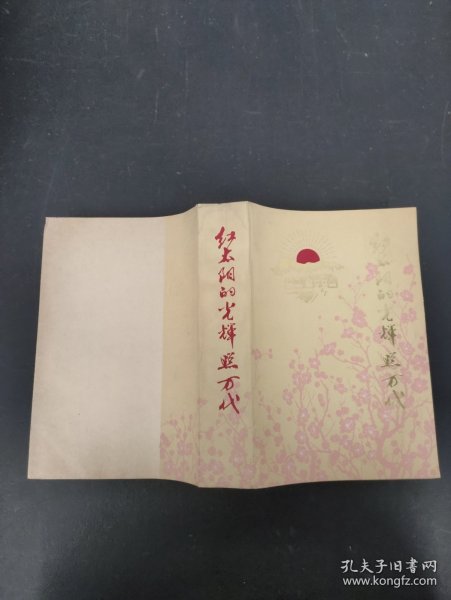 红太阳的光辉照万代
红太阳的光辉照万代
孔夫子旧书网
www.kongfz.com